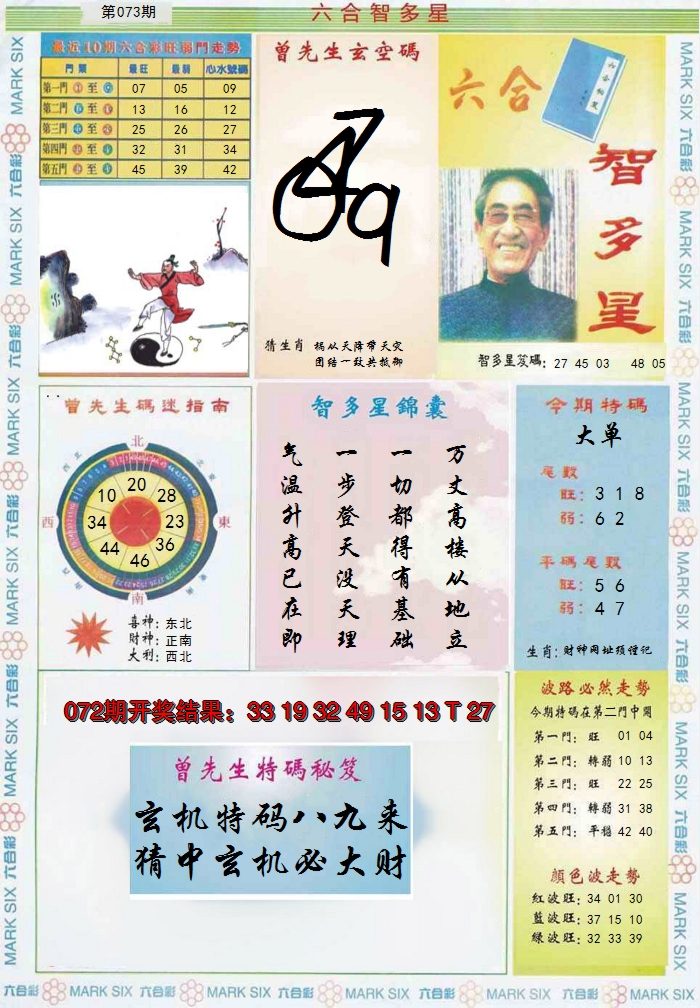 第073期
六合智多星
最近10期六合彩旺弱門走勢
門類 最旺 最弱 心水號碼
第一門 至 07 05 09
第二門 至 13 16 12
第三門 至 25 26 27
第四門 至 32 31 34
第五門 至 45 39 42
曾先生玄空碼
猜生肖 祸从天降带天灾
团结一致共抵御
六合
智多星
智多星笈碼: 27 45 03 48 05
曾先生碼迷指南
北
西北
東北
10 20 28
西 34 23 東
44 46 36
西南
東南
南
喜神: 东北
財神: 正南
大利: 西北
智多星錦囊
万丈高楼从地立
一切都得有基础
一步登天没天理
气温升高已在即
今期特碼
大单
尾數
旺: 3 1 8
弱: 6 2
平碼尾數
旺: 5 6
弱: 4 7
生肖: 财神网址须谨记
072期开奖结果: 33 19 32 49 15 13 T 27
曾先生特碼秘笈
玄机特码八九来
猜中玄机必大财
波路必然走勢
今期特碼在第二門中開
第一門: 旺 01 04
第二門: 轉弱 10 13
第三門: 旺 22 25
第四門: 轉弱 31 38
第五門: 平穩 42 40
顏色波走勢
紅波旺: 34 01 30
藍波旺: 37 15 10
綠波旺: 32 33 39
MARK SIX 六合彩